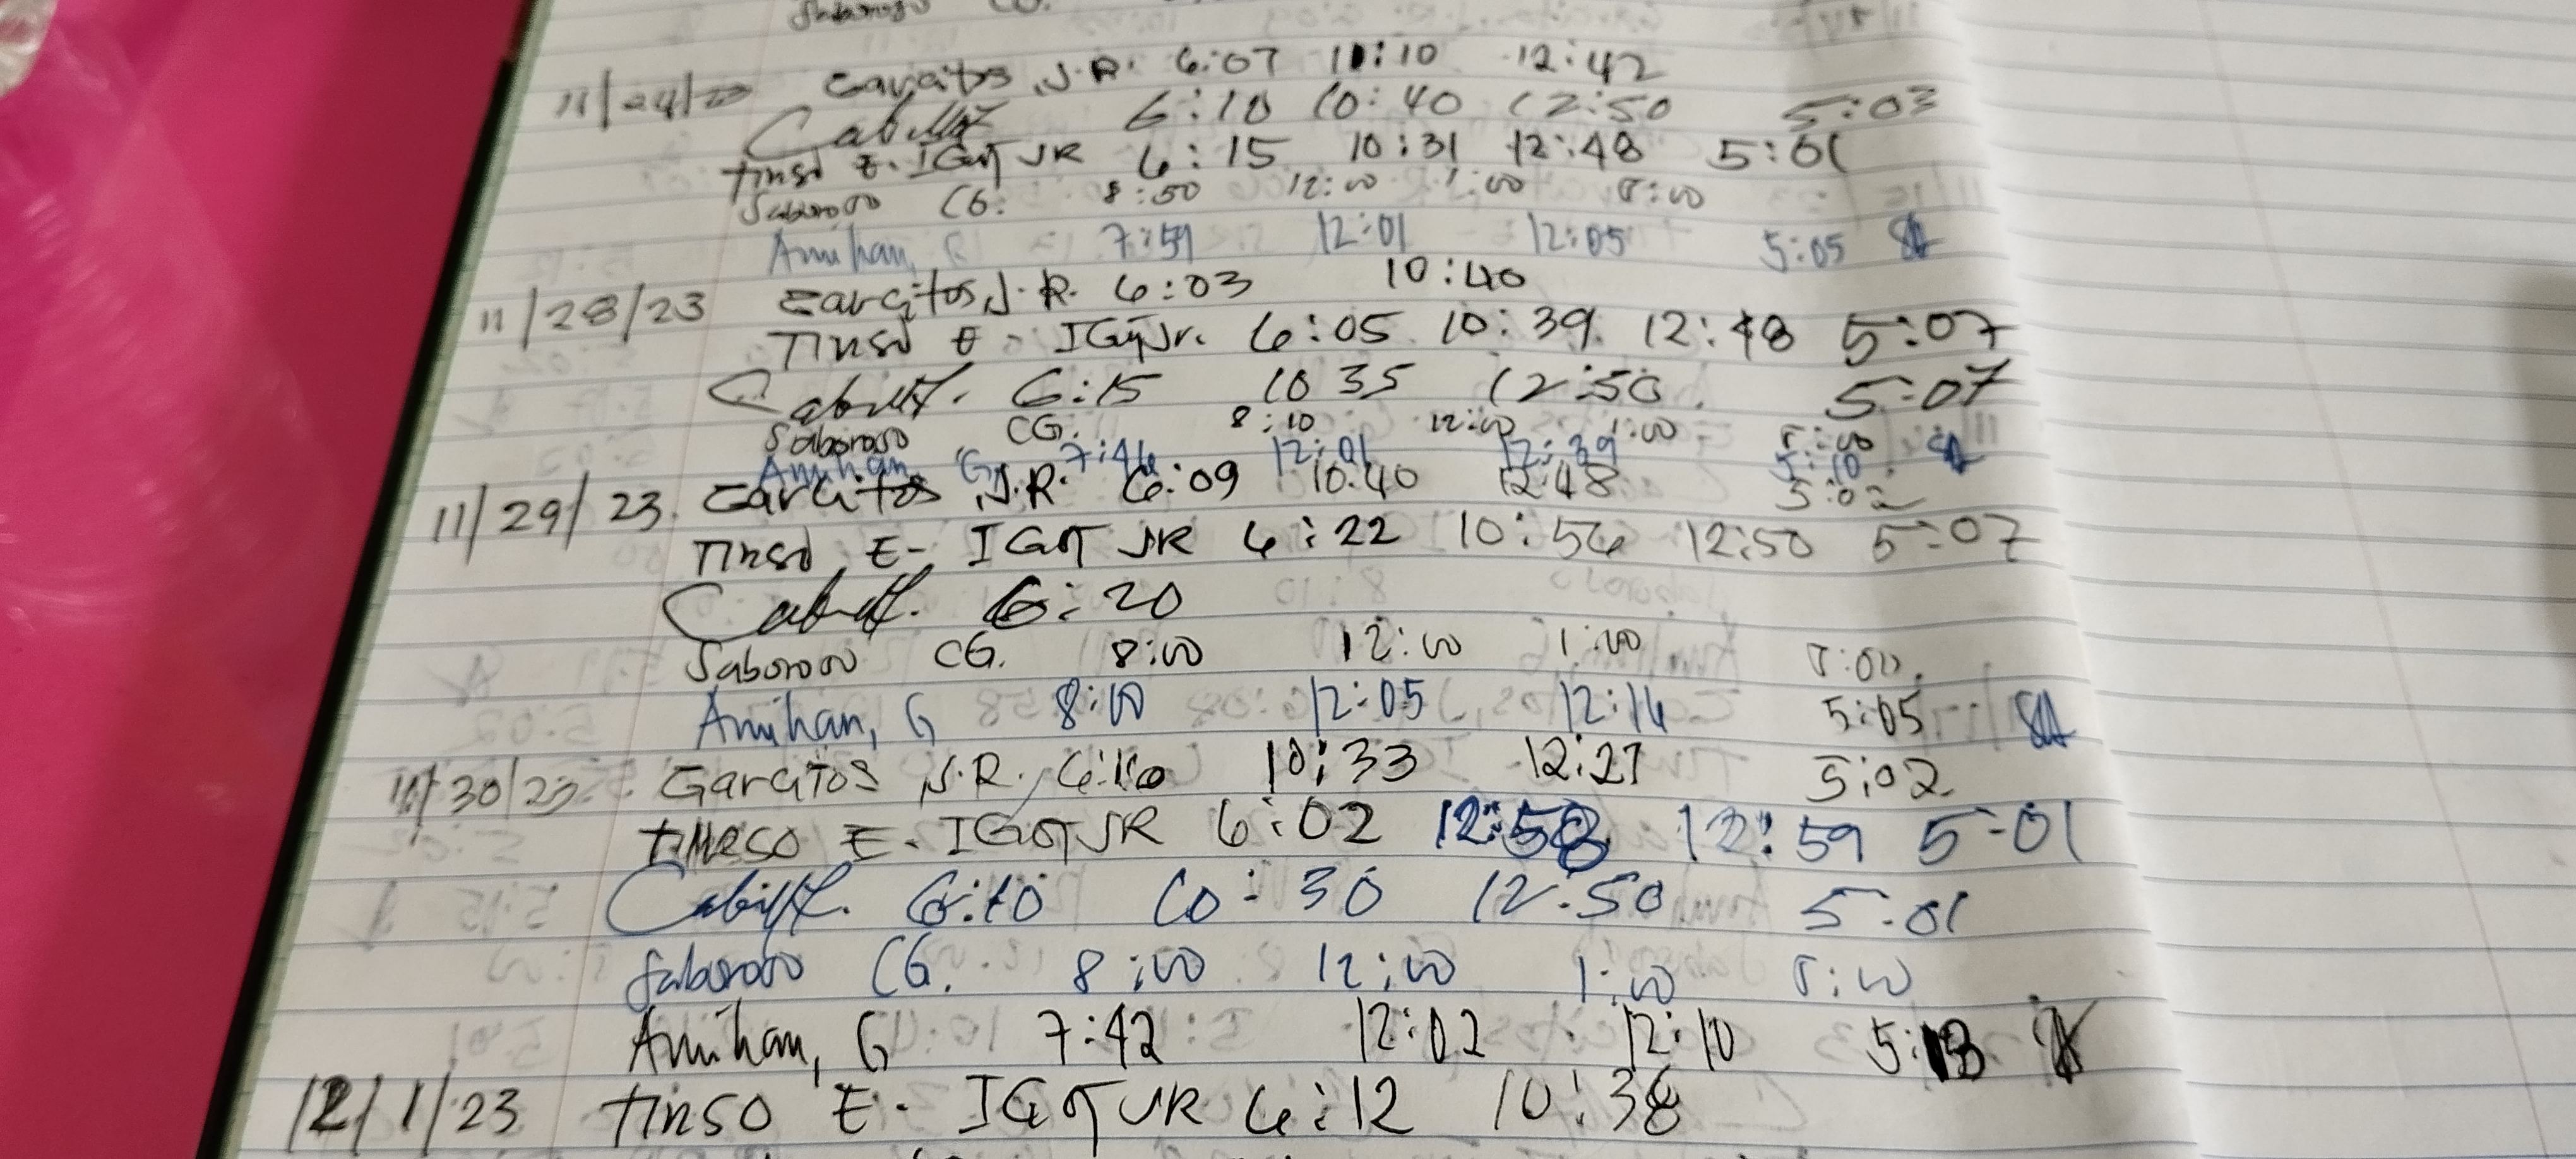 Saboroso CG.
11/24/23 Garcitos, J.R. 6:07 11:10 12:42
6:10 10:40 12:50 5:03
Tinso E. IGOT JR 6:15 10:31 12:48 5:01
Saboroso CG. 8:50 12:00 1:00 5:00
Amihan, G 7:59 12:01 12:05 5:05
11/28/23 Garcitos, J.R. 6:03 10:40
Tinso E - IGOT Jr. 6:05 10:39 12:48 5:07
6:15 10 35 12:50 5:07
Saboroso CG. 8:10 12:00 1:00 5:00
Amihan, G 7:46 12:01 12:39 5:10
11/29/23 Garcitos J.R. 6:09 10:40 12:48 5:02
Tinso E- IGOT JR 6:22 10:56 12:50 5:07
6:20
Saboroso CG. 8:00 12:00 1:00 5:00
Amihan, G 8:00 12:05 12:14 5:05
11/30/23 Garcitos J.R. 10:33 12:27 5:02
E- IGOT JR 6:02 12:58 12:59 5-01
6:10 10:30 12:50 5:01
Saboroso CG. 8:00 12:00 1:00 5:00
Amihan, G 7:42 12:02 12:10
12/1/23 Tinso E- IGOT JR 6:12 10:38